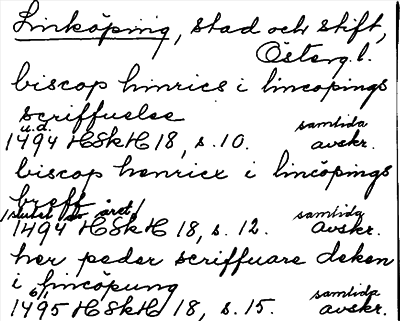 Linköping, stad och stift,
Österg.l.
biscop hinrics i lincopings
scriffuelse
u.d.
1494 HSkH 18, s. 10. samtida avskr.
biscop henricx i lincöpings
breff
/slutet av året/
1494 HSkH 18, s. 12. samtida avskr.
her peder scriffuare deken
i lincöpung
6/1
1495 HSkH 18, s. 15. samtida avskr.